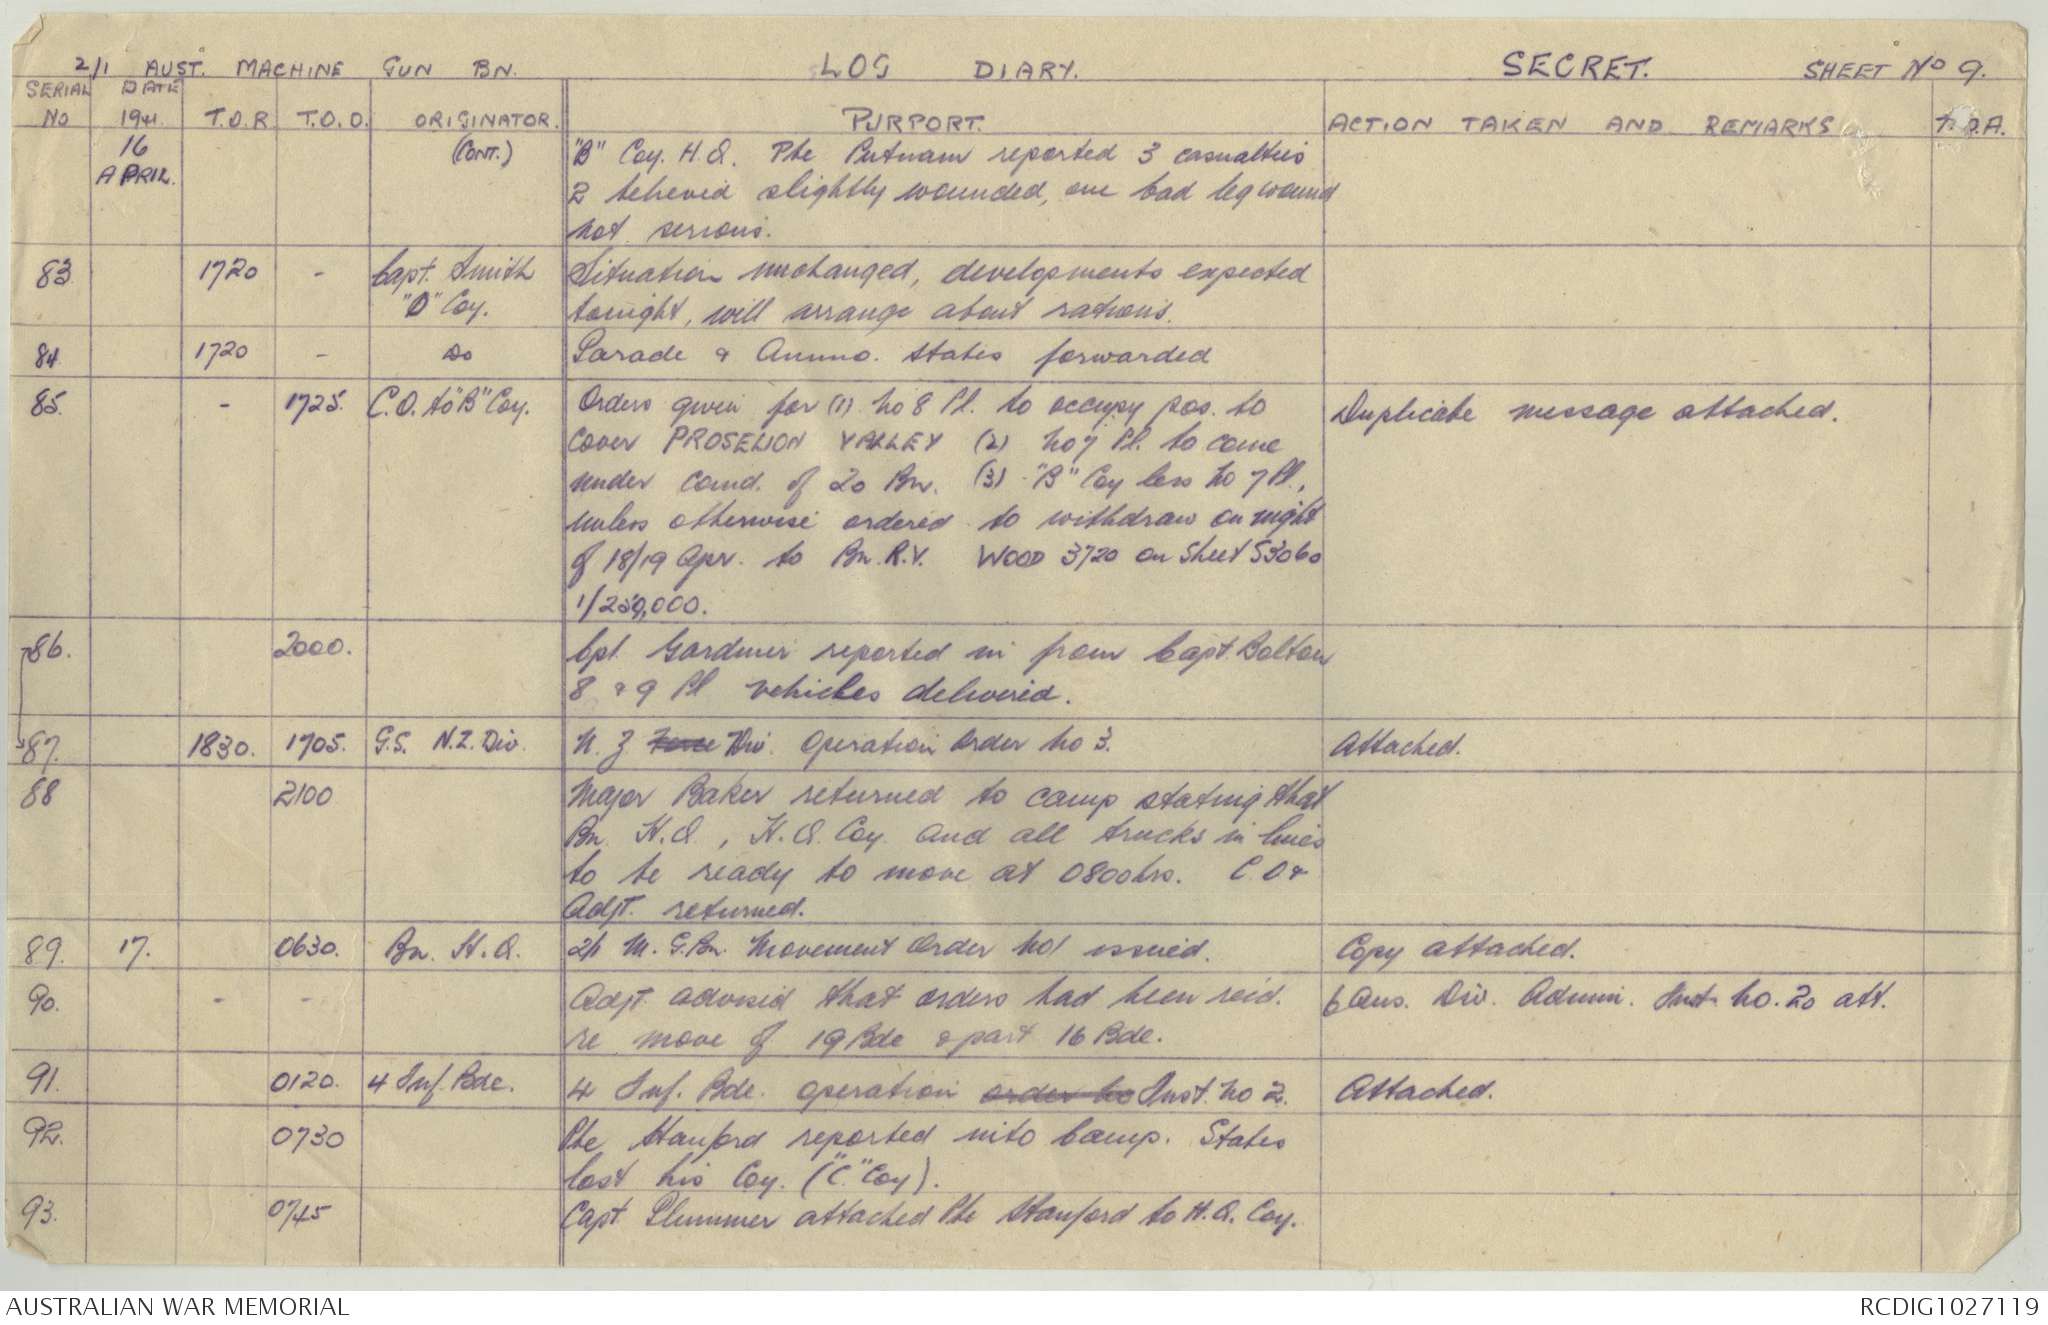 2/1 AUST. MACHINE GUN BN. LOG DIARY. SECRET. SHEET No 9.
SERIAL No DATE 1941. T.O.R. T.O.D. ORIGINATOR. PURPORT. ACTION TAKEN AND REMARKS T.O.A.
16 APRIL. (CONT.) "B" Coy. H.Q. Pte Putnam reported 3 casualties
2 believed slightly wounded, one bad leg wound
not serious.
83. 1720 - Capt. Smith Situation unchanged, developments expected
"D" Coy. tonight, will arrange about rations.
84. 1720 - Do Parade & Ammo. states forwarded
85. - 1725. C.O. to "B" Coy. Orders given for (1) No 8 Pl. to occupy pos. to Duplicate message attached.
cover PROSELION VALLEY (2) No 7 Pl. to come
under comd. of 20 Bn. (3) "B" Coy less No 7 Pl.,
unless otherwise ordered to withdraw on night
of 18/19 Apr. to Bn. R.V. WOOD 3720 on Sheet S3060
1/250,000.
86. 2000. Cpl. Gardiner reported in from Capt. Bolton
8 & 9 Pl vehicles delivered.
87. 1830. 1705. G.S. N.Z. Div. N.Z Force Div. Operation Order No 3. Attached.
88 2100 Major Baker returned to camp stating that
Bn. H.Q., H.Q. Coy. and all trucks in lines
to be ready to move at 0800 hrs. C.O &
Adjt. returned.
89. 17. 0630. Bn. H.Q. 2/1 M.G.Bn. Movement Order No 1 issued. Copy attached.
90. - - Adjt. advised that orders had been recd. 6 Aus. Div. Admin. Inst. No. 20 att.
re move of 19 Bde & part 16 Bde.
91. 0120. 4 Inf. Bde. 4 Inf. Bde. operation order No Inst. No 2. Attached.
92. 0730 Pte Stanford reported into Camp. States
lost his Coy. ("C" Coy).
93. 0745 Capt Plummer attached Pte Stanford to H.Q. Coy.
AUSTRALIAN WAR MEMORIAL RCDIG1027119